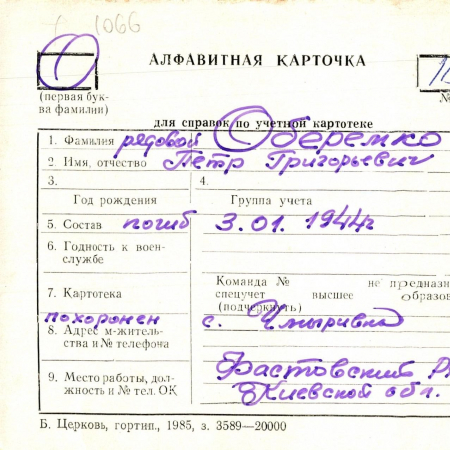 1066
О
АЛФАВИТНАЯ КАРТОЧКА
(первая бук-
ва фамилии)
№
для справок по учетной картотеке
1. Фамилия рядовой Оберемко
2. Имя, отчество Петр Григорьевич
3. 4.
Год рождения Группа учета
5. Состав погиб 3.01.1944г
6. Годность к воен-
службе
Команда № не предназн
7. Картотека спецучет высшее образов
(подчеркнуть)
похоронен с.
8. Адрес м-житель-
ства и № телефона
Фастовский
9. Место работы, дол-
жность и № тел. ОК Киевской обл.
Б. Церковь, гортип., 1985, з. 3589—20000